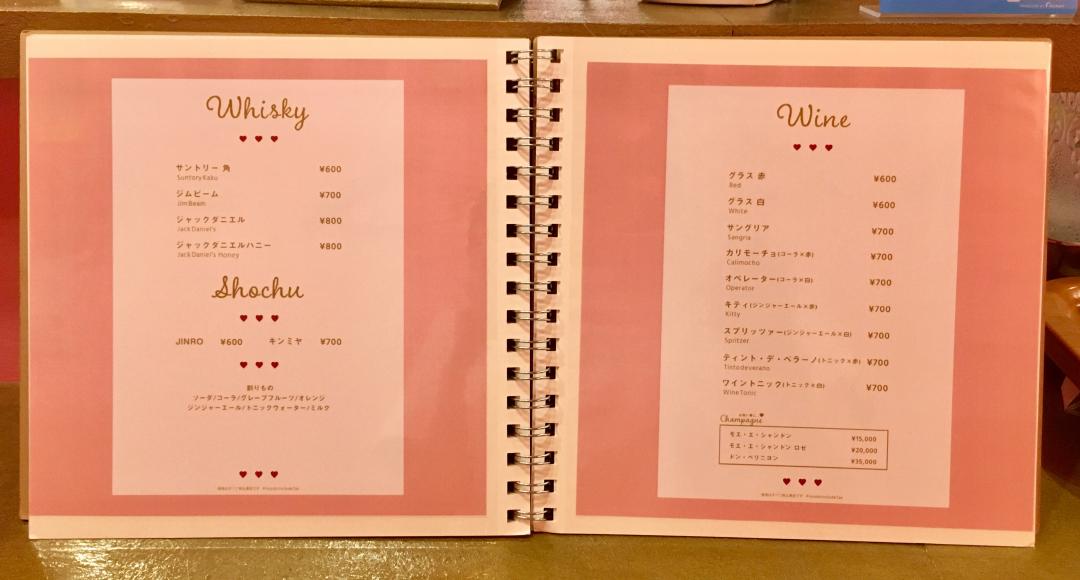 Whisky
サントリー 角 ¥600
Suntory Kaku
ジムビーム ¥700
Jim Beam
ジャックダニエル ¥800
Jack Daniel's
ジャックダニエルハニー ¥800
Jack Daniel's Honey
Shochu
JINRO ¥600 キンミヤ ¥700
割りもの
ソーダ/コーラ/グレープフルーツ/オレンジ
ジンジャーエール/トニックウォーター/ミルク
Wine
グラス 赤 ¥600
Red
グラス 白 ¥600
White
サングリア ¥700
Sangria
カリモーチョ(コーラ×赤) ¥700
Calimocho
オペレーター(コーラ×白) ¥700
Operator
キティ(ジンジャーエール×赤) ¥700
Kitty
スプリッツァー(ジンジャーエール×白) ¥700
Spritzer
ティント・デ・ベラーノ(トニック×赤) ¥700
Tintodeverano
ワイントニック(トニック×白) ¥700
Wine Tonic
Champagne
モエ・エ・シャンドン ¥15,000
モエ・エ・シャンドン ロゼ ¥20,000
ドン・ペリニヨン ¥35,000